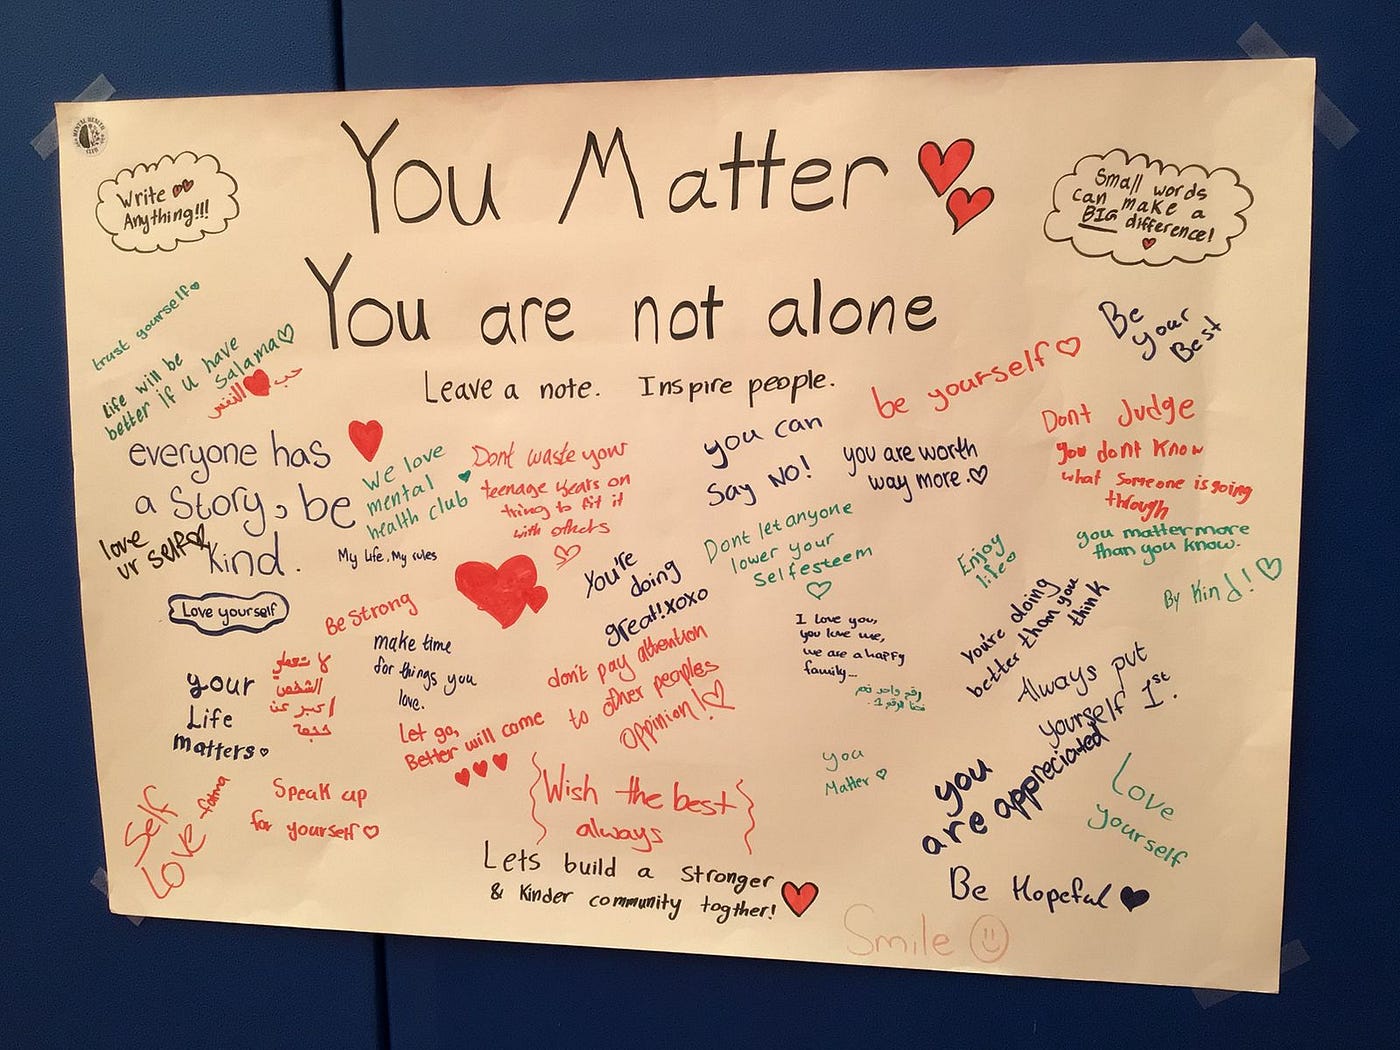 MENTAL HEALTH
CLUB
Write
Anything!!!
You Matter
Small words
can make a
BIG difference!
You are not alone
Leave a note. Inspire people.
trust yourself
Life will be
better if u have
Salama
حب النفس
be yourself
Be
your
Best
everyone has
a Story, be
kind.
love
ur self
We love
mental
health club
Dont waste your
teenage years on
tring to fit it
with others
My Life, My rules
you can
Say NO!
you are worth
way more.
Dont Judge
you dont know
what someone is going
through
you matter more
than you know.
By Kind!
Dont let anyone
lower your
Selfesteem
Enjoy
life
You're
doing
great! xoxo
Love yourself
Be Strong
make time
for things you
love.
I love you,
you love me,
we are a happy
family...
you're doing
better than you
think
Always put
yourself 1st.
your
Life
matters.
الشخص
اكبر من
don't pay attention
to other peoples
oppinion!
Let go,
Better will come
رقم واحد
you
Matter
you
are appreciated
Love
yourself
Self
Love -fatma
Speak up
for yourself
Wish the best
always
Lets build a stronger
& kinder community togther!
Be Hopeful
Smile